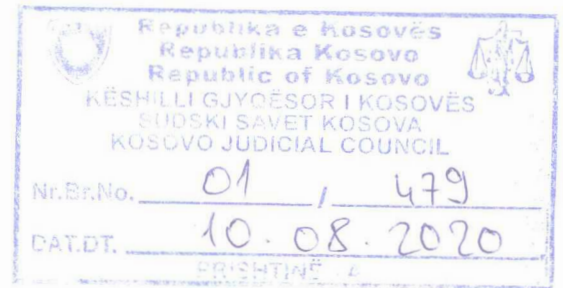 Republika e Kosovës
Republika Kosovo
Republic of Kosovo
KËSHILLI GJYQËSOR I KOSOVËS
SUDSKI SAVET KOSOVA
KOSOVO JUDICIAL COUNCIL
Nr.Br.No. 01 / 479
DAT.DT. 10.08.2020